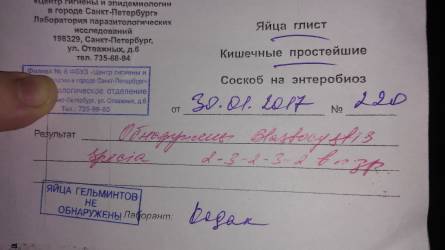 «Центр гигиены и эпидемиологии
в городе Санкт-Петербург»
Лаборатория паразитологических
исследований
198329, Санкт-Петербург,
ул. Отважных, д.6
тел. 735-68-94
Филиал № 6 ФБУЗ «Центр гигиены и
в городе Санкт-Петербург»
отделение
Санкт-Петербург, ул. Отважных, д.6
Тел.: 735-99-83
Яйца глист
Кишечные простейшие
Соскоб на энтеробиоз
от 30.01.2017 № 220
Результат Обнаружены Blastocystis
species 2-3-2-3-2 в п. зр
ЯЙЦА ГЕЛЬМИНТОВ
НЕ
ОБНАРУЖЕНЫ
Лаборант: